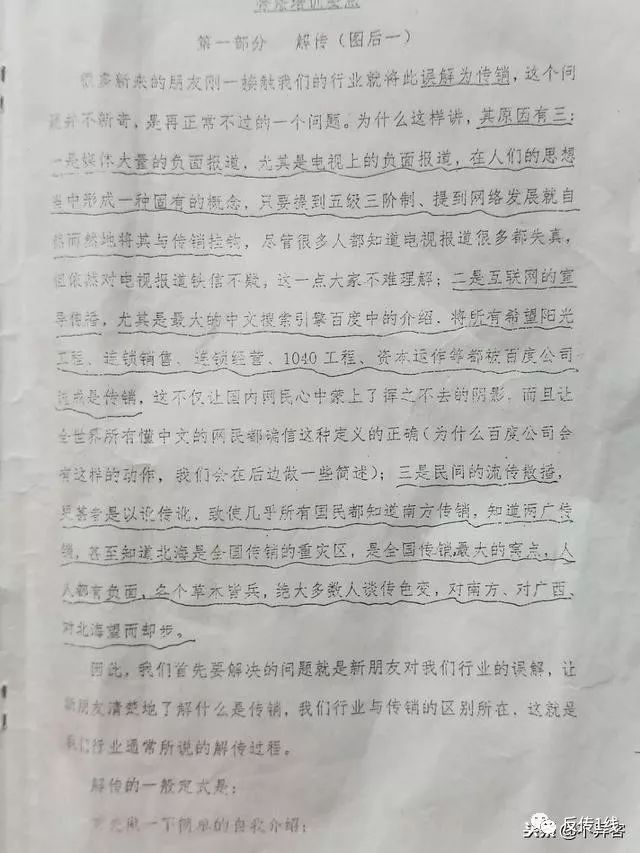 培训要点
第一部分 解传（图后一）
很多新来的朋友刚一接触我们的行业就将此误解为传销，这个问
题并不新奇，是再正常不过的一个问题。为什么这样讲，其原因有三：
一是媒体大量的负面报道，尤其是电视上的负面报道，在人们的思想
当中形成一种固有的概念，只要提到五级三阶制、提到网络发展就自
然而然地将其与传销挂钩，尽管很多人都知道电视报道很多都失真，
但依然对电视报道铁信不疑，这一点大家不难理解；二是互联网的宣
导传播，尤其是最大的中文搜索引擎百度中的介绍，将所有希望阳光
工程、连锁销售、连锁经营、1040工程、资本运作等都被百度公司
说成是传销，这不仅让国内网民心中蒙上了挥之不去的阴影，而且让
全世界所有懂中文的网民都确信这种定义的正确（为什么百度公司会
有这样的动作，我们会在后边做一些简述）；三是民间的流传散播，
更甚者是以讹传讹，致使几乎所有国民都知道南方传销，知道两广传
销，甚至知道北海是全国传销的重灾区，是全国传销最大的窝点，人
人都有负面，各个草木皆兵，绝大多数人谈传色变，对南方、对广西、
对北海望而却步。
因此，我们首先要解决的问题就是新朋友对我们行业的误解，让
新朋友清楚地了解什么是传销，我们行业与传销的区别所在，这就是
我们行业通常所说的解传过程。
解传的一般定式是：
首先做一下简单的自我介绍；
反传1线
头条 @不弃客